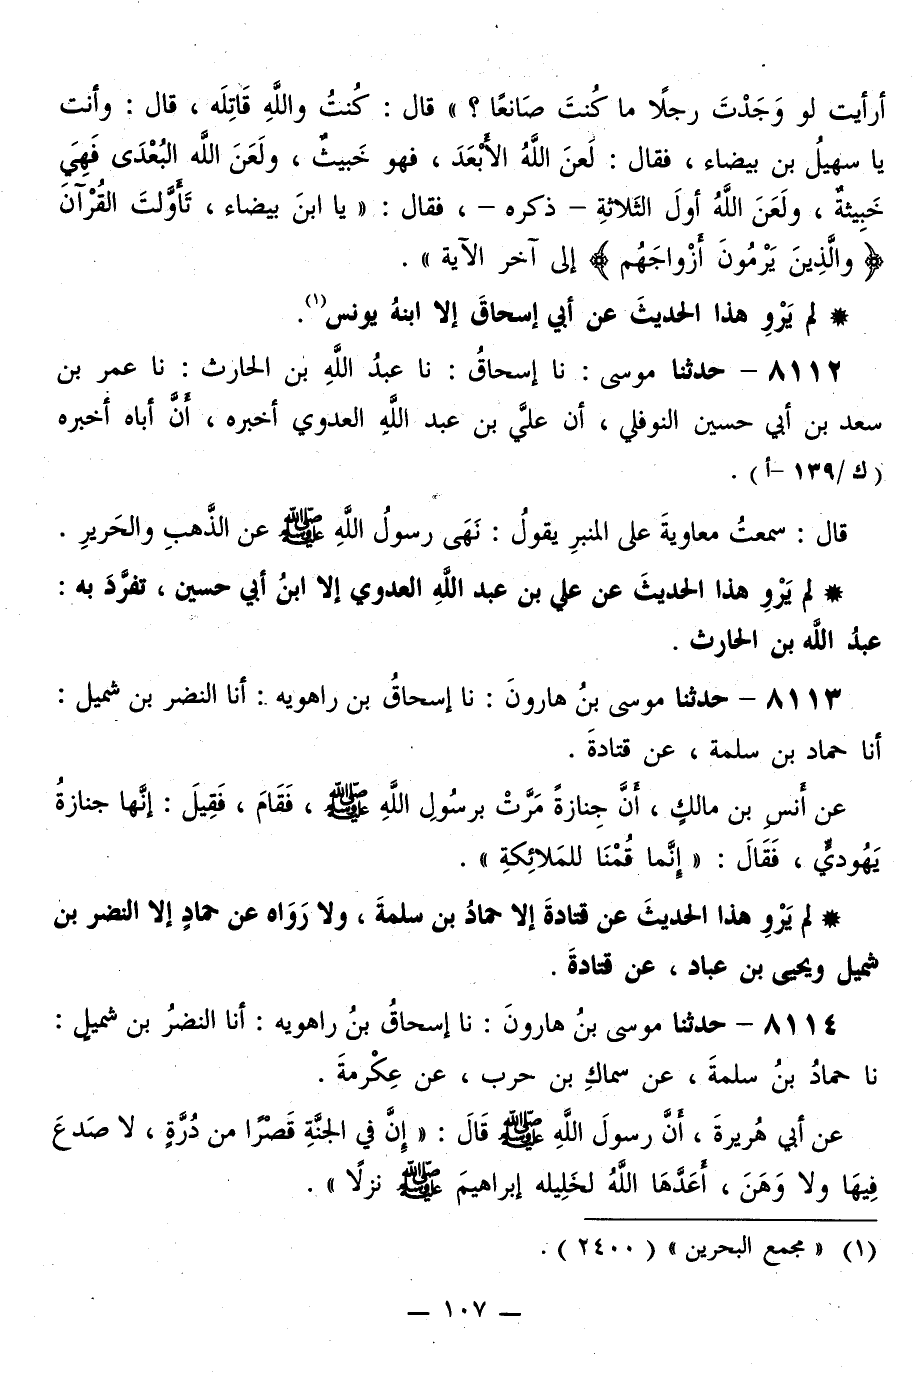 أرأيت لو وَجَدْتَ رجلًا ما كُنتَ صَانعًا ؟ » قال : كُنتُ واللَّهِ قَاتِلَه ، قال : وأنت
يا سهيلُ بن بيضاء ، فقال : لَعنَ اللَّهُ الأَبْعَدَ ، فهو خَبيثٌ ، ولَعَنَ اللَّه البُعْدَى فَهِيَ
خَبِيثةٌ ، ولَعَنَ اللَّهُ أولَ الثَلاثةِ – ذكره – ، فقال : « يا ابنَ بيضاء ، تَأَوَّلتَ القُرْآنَ
﴿ والَّذِينَ يَرْمُونَ أَزْواجَهُم ﴾ إلى آخر الآية » .
* لم يَرْوِ هذا الحديثَ عن أبي إسحاقَ إلا ابنهُ يونس(١).
٨١١٢ – حدثنا موسى : نا إسحاقُ : نا عبدُ اللَّهِ بن الحارث : نا عمر بن
سعد بن أبي حسين النوفلي ، أن عليَّ بن عبد اللَّهِ العدوي أخبره ، أَنَّ أباه أخبره
( ك /١٣٩ –أ ) .
قال : سمعتُ معاويةَ على المنبرِ يقولُ : نَهَى رسولُ اللَّهِ ﷺ عن الذَّهبِ والحَريرِ .
* لم يَرْوِ هذا الحديثَ عن علي بن عبد اللَّهِ العدوي إلا ابنُ أبي حسين ، تفرَّدَ به :
عبدُ اللَّه بن الحارث .
٨١١٣ – حدثنا موسى بنُ هارونَ : نا إسحاقُ بن راهويه : أنا النضر بن شميل :
أنا حماد بن سلمة ، عن قتادةَ .
عن أَنسِ بن مالكٍ ، أَنَّ جِنازةً مَرَّتْ برسُولِ اللَّهِ ﷺ ، فَقَامَ ، فَقِيلَ : إنَّها جنازةُ
يَهُوديٍّ ، فَقَالَ : « إِنَّما قُمْنَا للمَلائِكةِ » .
* لم يَرْوِ هذا الحديثَ عن قتادةَ إلا حمادُ بن سلمةَ ، ولا رَوَاه عن حمادٍ إلا النضر بن
شميل ويحيى بن عباد ، عن قتادةَ .
٨١١٤ – حدثنا موسى بنُ هارونَ : نا إسحاقُ بنُ راهويه : أنا النضرُ بن شميلٍ :
نا حمادُ بنُ سلمةَ ، عن سماكِ بن حرب ، عن عِكْرمةَ .
عن أبي هُريرةَ ، أَنَّ رسولَ اللَّهِ ﷺ قَالَ : « إِنَّ في الجنَّةِ قَصْرًا من دُرَّةٍ ، لا صَدعَ
فِيهَا ولا وَهَنَ ، أَعَدَّهَا اللَّهُ لخَلِيله إبراهيمَ ﷺ نزلًا » .
(١) « مجمع البحرين » ( ٢٤٠٠ ) .
— ١٠٧ —